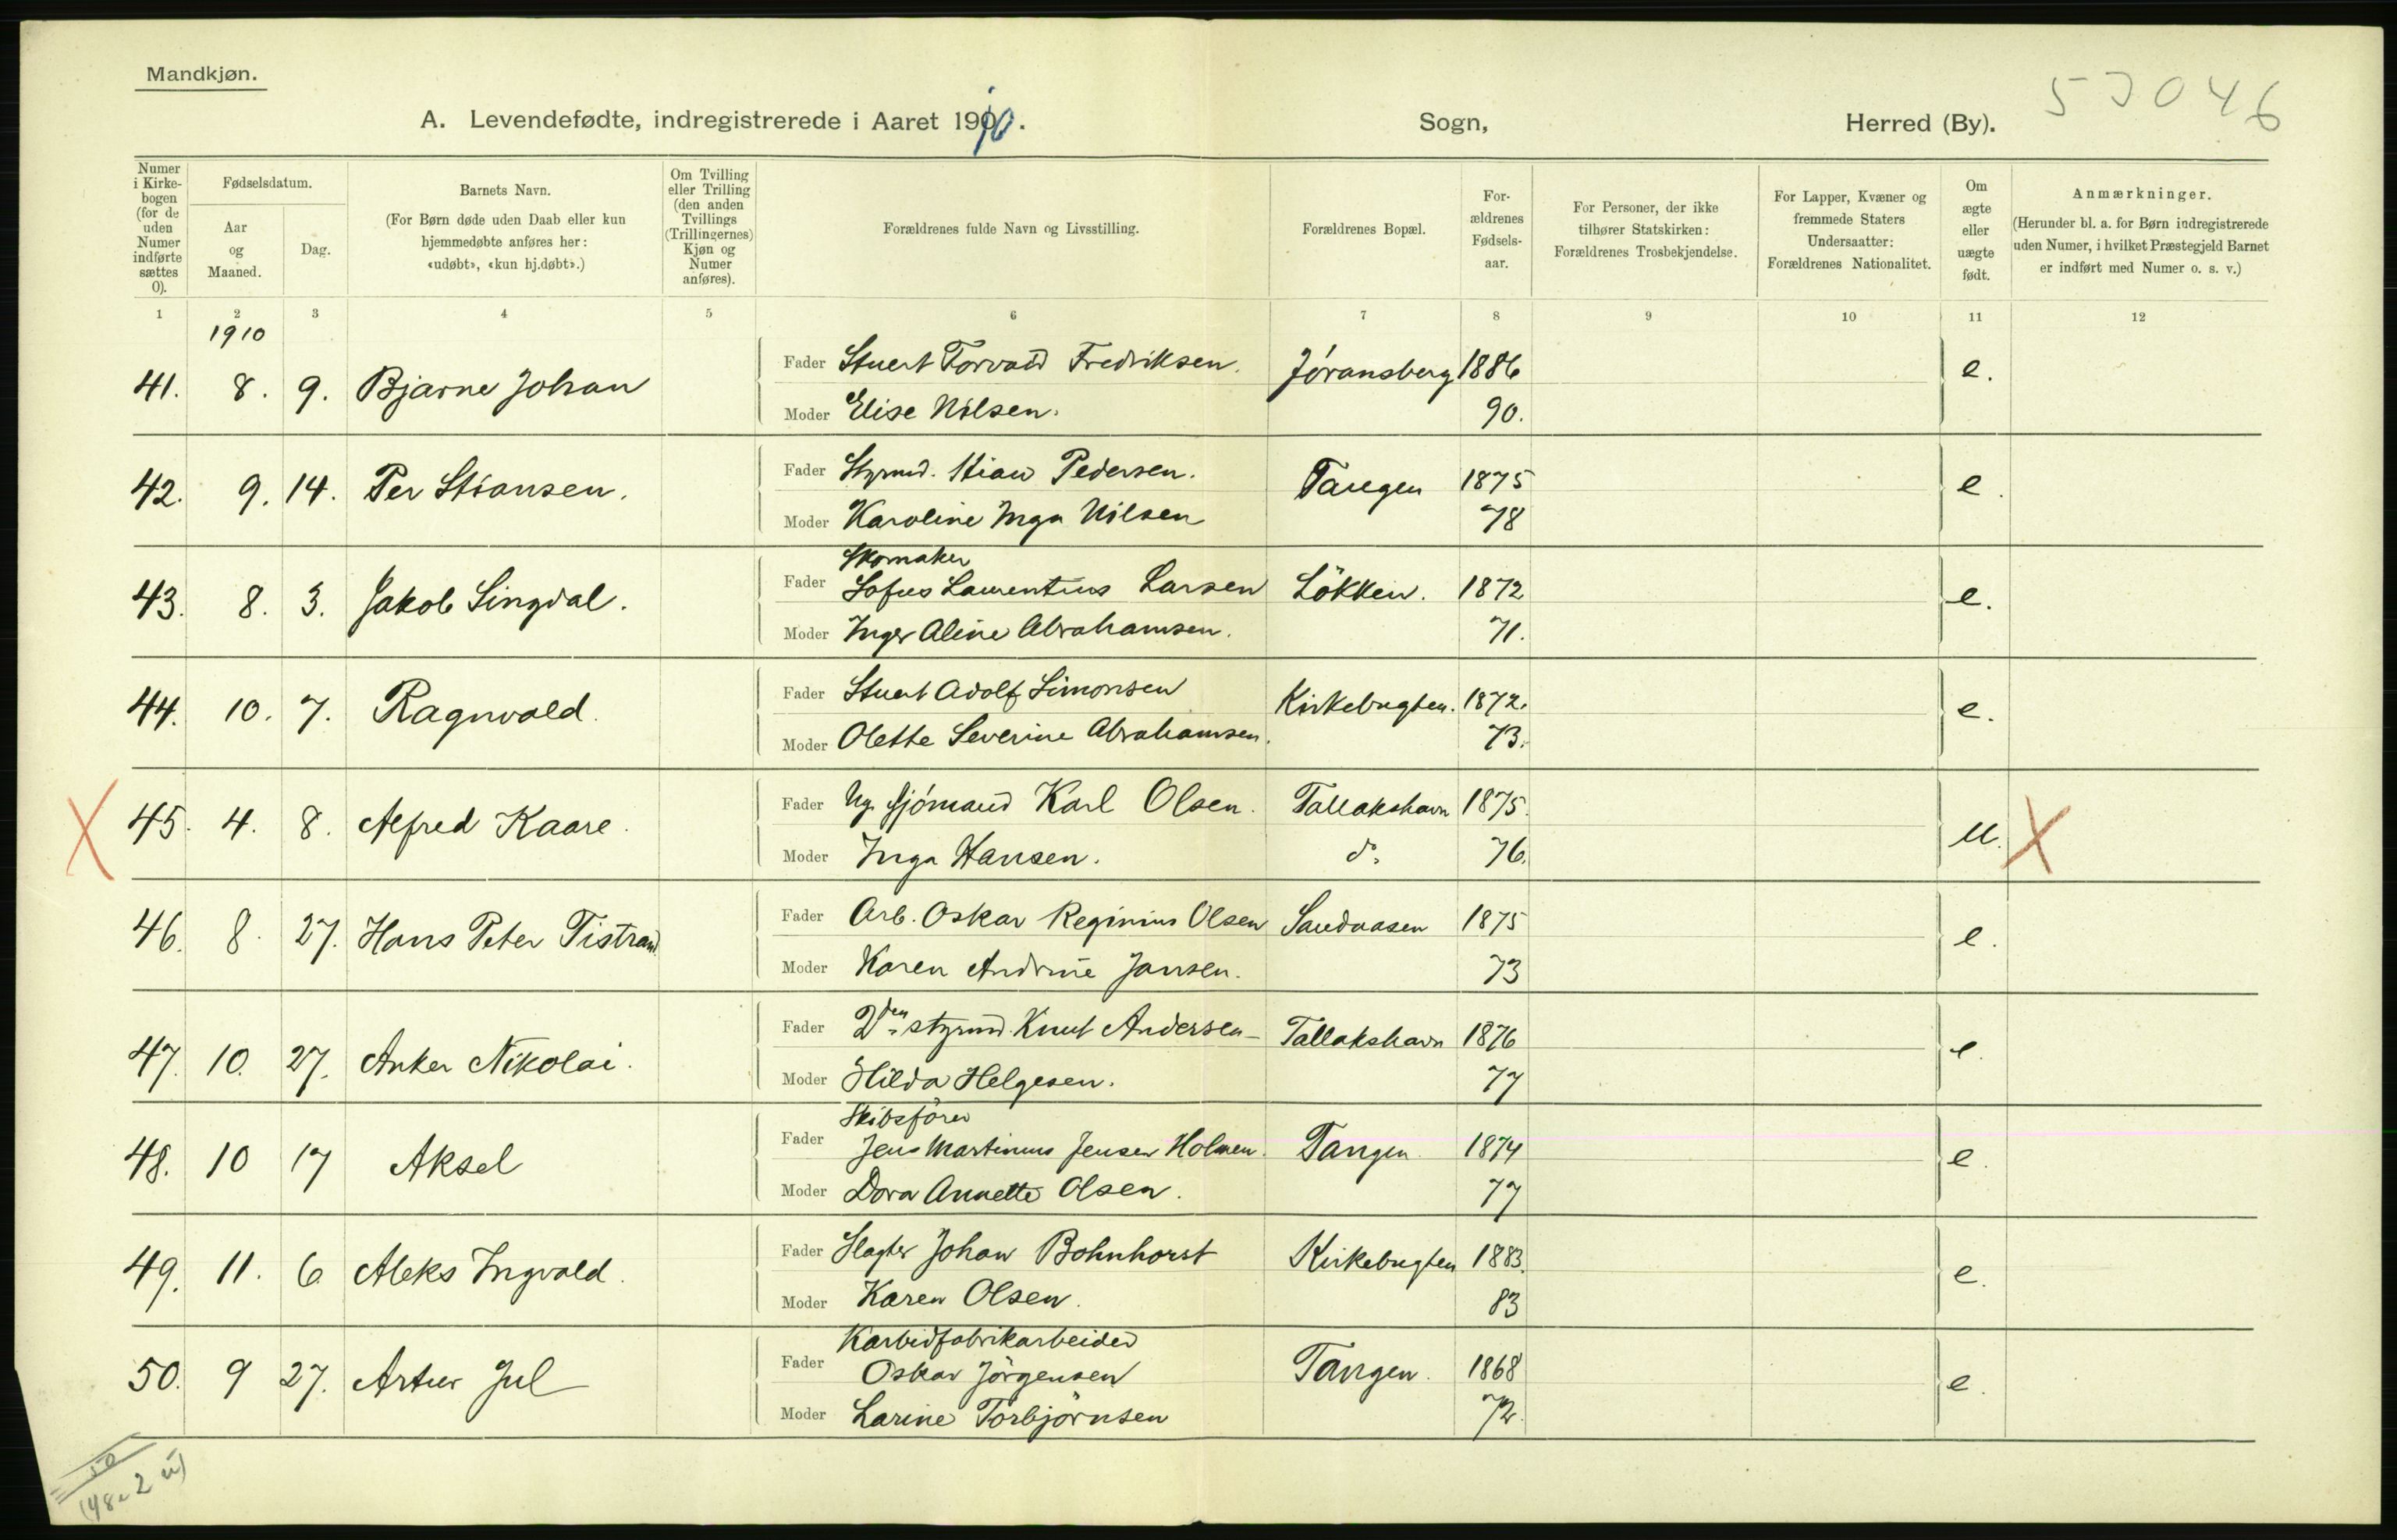 Mandkjøn.
53046
A. Levendefødte, indregistrerede i Aaret 1910. Sogn, Herred (By).
Numer i Kirkebogen (for de uden Numer indførte sættes 0).
Fødselsdatum.
Aar og Maaned.
Dag.
Barnets Navn.
(For Børn døde uden Daab eller kun hjemmedøbte anføres her: «udøbt», «kun hj.døbt».)
Om Tvilling eller Trilling (den anden Tvillings (Trillingernes) Kjøn og Numer anføres).
Forældrenes fulde Navn og Livsstilling.
Forældrenes Bopæl.
Forældrenes Fødselsaar.
For Personer, der ikke tilhører Statskirken: Forældrenes Trosbekjendelse.
For Lapper, Kvæner og fremmede Staters Undersaatter: Forældrenes Nationalitet.
Om ægte eller uægte født.
Anmærkninger.
(Herunder bl. a. for Børn indregistrerede uden Numer, i hvilket Præstegjeld Barnet er indført med Numer o. s. v.)
1 2 3 4 5 6 7 8 9 10 11 12
1910
41. 8. 9. Bjarne Johan Fader Stuert Torvald Fredriksen. Jøransberg 1886 e.
Moder Elise Nilsen. 90.
42. 9. 14. Per Stiansen. Fader Styrmd. Stian Pedersen. Tangen 1875 e.
Moder Karoline Inga Nilsen 78
Skomaker
43. 8. 3. Jakob Singdal. Fader Sofus Laurentius Larsen Løkken. 1872 e.
Moder Inger Aline Abrahamsen. 71.
44. 10. 7. Ragnvald. Fader Stuert Adolf Simonsen Kirkebugten. 1872. e.
Moder Olette Severine Abrahamsen. 73.
45. 4. 8. Alfred Kaare. Fader Ug. sjømand Karl Olsen. Tallakshavn 1875. u.
Moder Inga Hansen. do 76.
46. 8. 27. Hans Peter Tistrand Fader Arb. Oskar Reginius Olsen Sandaasen 1875 e.
Moder Karen Andrine Jansen. 73
47. 10. 27. Anker Nikolai. Fader 2den styrmd. Knut Andersen Tallakshavn 1876 e.
Moder Hilda Helgesen. 77
Skibsfører
48. 10 17 Aksel Fader Jens Martinius Jensen Holmen. Tangen 1874 e.
Moder Dora Annette Olsen. 77
49. 11. 6 Aleks Ingvald. Fader Slagter Johan Bohnhorst Kirkebugten 1883. e.
Moder Karen Olsen. 83
Karbidfabrikarbeider
50. 9 27. Artur Jul Fader Oskar Jørgensen Tangen. 1868 e.
Moder Larine Torbjørnsen 72.
50
(48e 2 u)